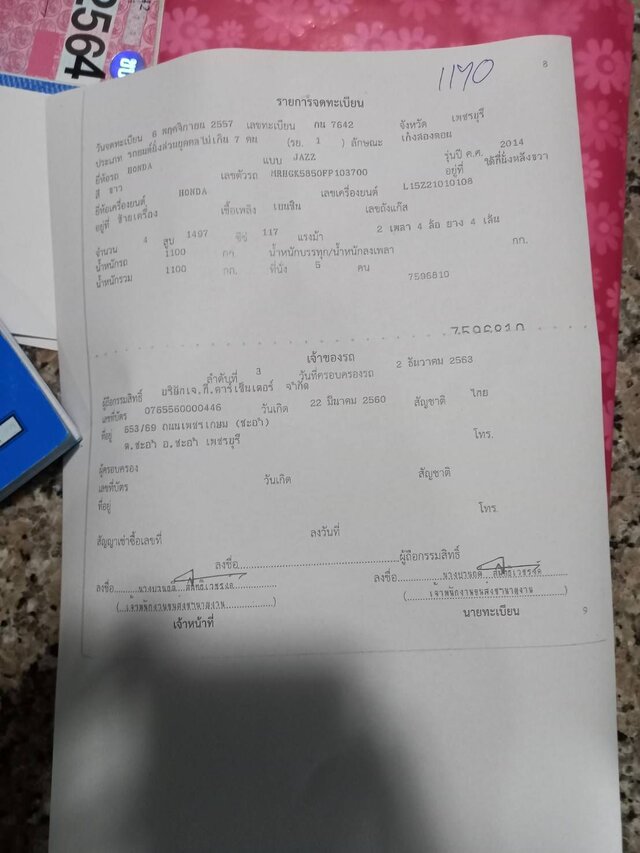 2564
1170
8
รายการจดทะเบียน
วันจดทะเบียน 6 พฤศจิกายน 2557 เลขทะเบียน กน 7642 จังหวัด เพชรบุรี
ประเภท รถยนต์นั่งส่วนบุคคลไม่เกิน 7 คน (รย. 1 ) ลักษณะ เก๋งสองตอน
ยี่ห้อรถ HONDA แบบ JAZZ รุ่นปี ค.ศ. 2014
สี ขาว เลขตัวรถ MRHGK5850FP103700 อยู่ที่ ใต้ที่นั่งหลังขวา
ยี่ห้อเครื่องยนต์ HONDA เลขเครื่องยนต์ L15Z21010108
อยู่ที่ ซ้ายเครื่อง เชื้อเพลิง เบนซิน เลขถังแก๊ส
จำนวน 4 สูบ 1497 ซีซี 117 แรงม้า 2 เพลา 4 ล้อ ยาง 4 เส้น
น้ำหนักรถ 1100 กก. น้ำหนักบรรทุก/น้ำหนักลงเพลา กก.
น้ำหนักรวม 1100 กก. ที่นั่ง 5 คน 7596810
7596810
เจ้าของรถ
ลำดับที่ 3 วันที่ครอบครองรถ 2 ธันวาคม 2563
ผู้ถือกรรมสิทธิ์ บริษัทเจ.ที.คาร์เซ็นเตอร์ จำกัด
เลขที่บัตร 0765560000446 วันเกิด 22 มีนาคม 2560 สัญชาติ ไทย
ที่อยู่ 653/69 ถนนเพชรเกษม (ชะอำ)
ต.ชะอำ อ.ชะอำ เพชรบุรี โทร.
ผู้ครอบครอง
เลขที่บัตร วันเกิด สัญชาติ
ที่อยู่ โทร
สัญญาเช่าซื้อเลขที่ ลงวันที่
ลงชื่อ ผู้ถือกรรมสิทธิ์
ลงชื่อ ลงชื่อ
(เจ้าพนักงานขนส่งชำนาญงาน) (เจ้าพนักงานขนส่งชำนาญงาน)
เจ้าหน้าที่ นายทะเบียน 9